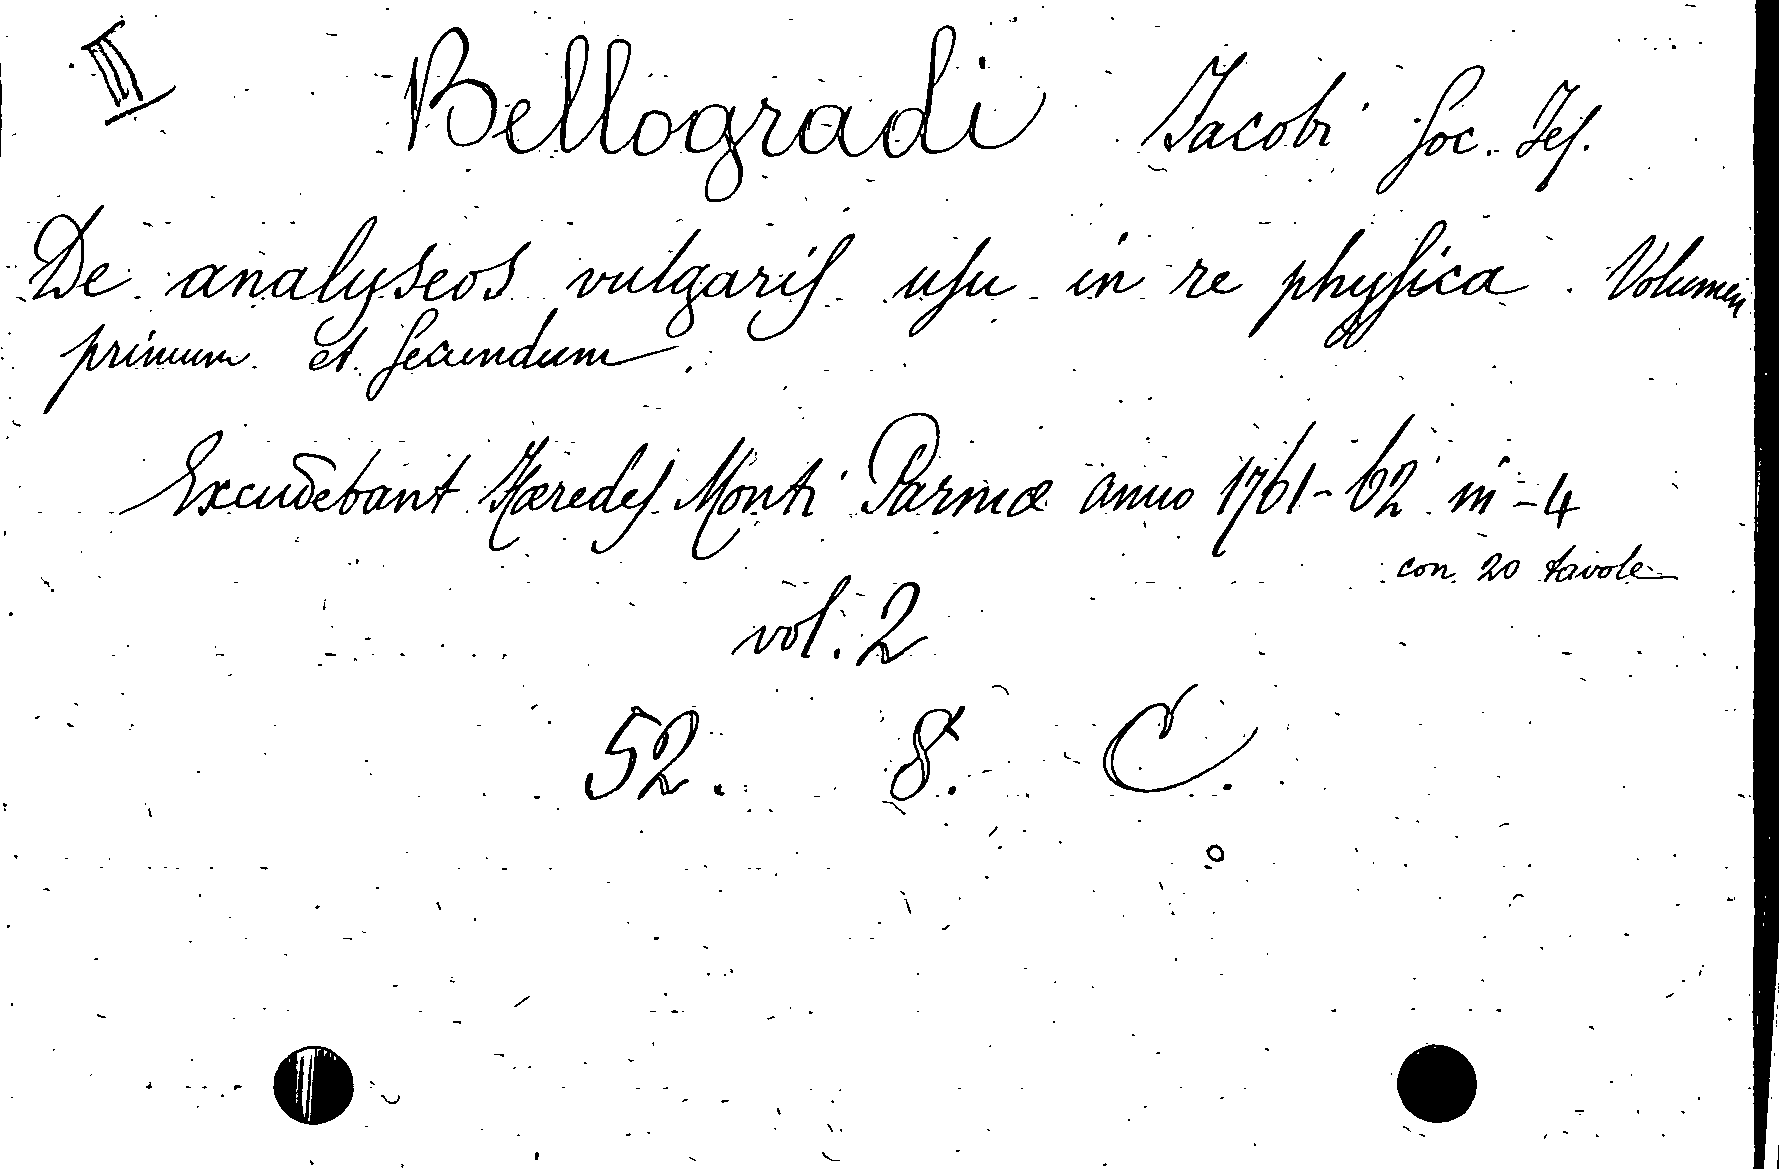 III Bellogradi Jacobi Soc. Jes.
De analyseos vulgaris usu in re physica. Volumen
primum et secundum.
Excudebant Hæredes Monti Parmæ anno 1761-62 in-4
con 20 tavole
vol. 2
52. 8. C.